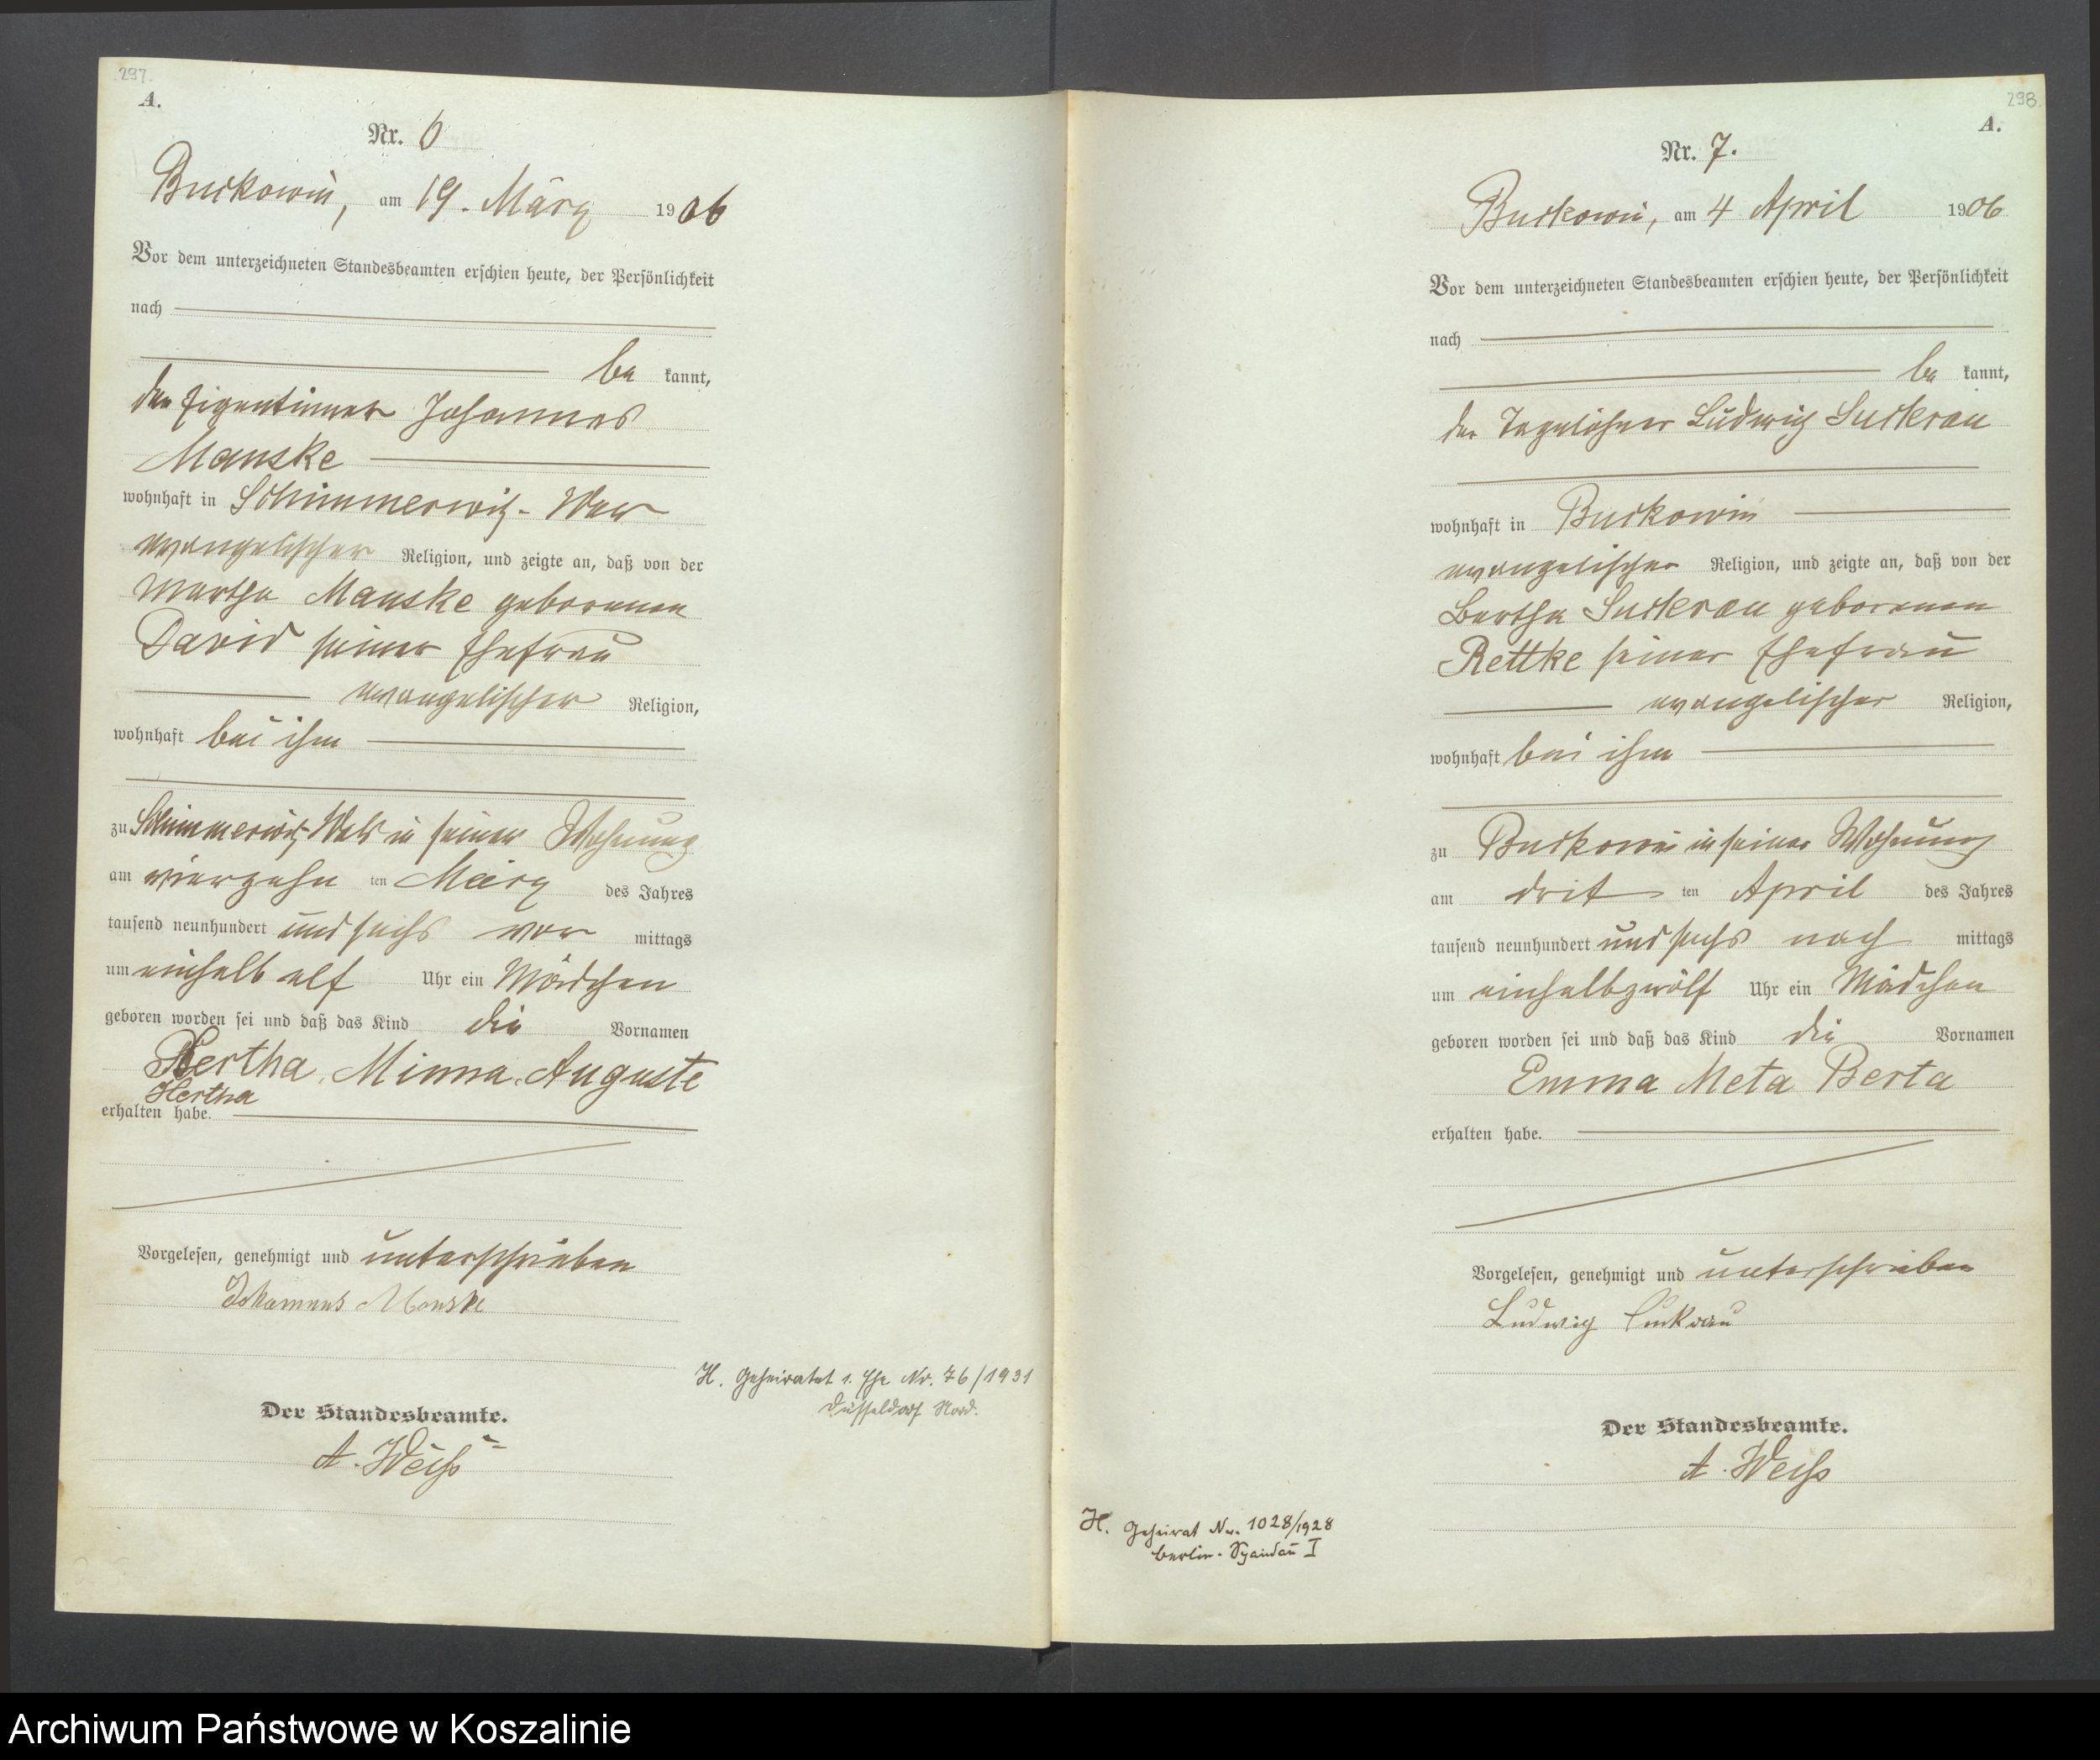 297.
A.
Nr. 6
Buckowin, am 19. März 1906
Vor dem unterzeichneten Standesbeamten erschien heute, der Persönlichkeit
nach
be kannt,
der Eigentümer Johannes
Manske
wohnhaft in Schimmerwitz-
evangelischer Religion, und zeigte an, daß von der
Martha Manske geborenen
David seiner Ehefrau
evangelischer Religion,
wohnhaft bei ihm
zu Schimmerwitz in seiner Wohnung
am vierzehn ten März des Jahres
tausend neunhundert und sechs vor mittags
um einhalb elf Uhr ein Mädchen
geboren worden sei und daß das Kind die Vornamen
Hertha, Minna, Auguste
Hertha
erhalten habe.
Vorgelesen, genehmigt und unterschrieben
Johannes Manske
Der Standesbeamte.
A. Weiß
H. Geheiratet 1. Ehe Nr. 76/1931
Düsseldorf Nord.
298.
A.
Nr. 7.
Buckowin, am 4 April 1906
Vor dem unterzeichneten Standesbeamten erschien heute, der Persönlichkeit
nach
be kannt,
der Tagelöhner Ludwig Suckrau
wohnhaft in Buckowin
evangelischer Religion, und zeigte an, daß von der
Bertha Suckrau geborenen
Rettke seiner Ehefrau
evangelischer Religion,
wohnhaft bei ihm
zu Buckowin in seiner Wohnung
am drit ten April des Jahres
tausend neunhundert und sechs nach mittags
um einhalbzwölf Uhr ein Mädchen
geboren worden sei und daß das Kind die Vornamen
Emma Meta Berta
erhalten habe.
Vorgelesen, genehmigt und unterschrieben
Ludwig Suckrau
Der Standesbeamte.
A. Weiß
H. Geheirat Nr. 1028/1928
Berlin-Spandau I
Archiwum Państwowe w Koszalinie